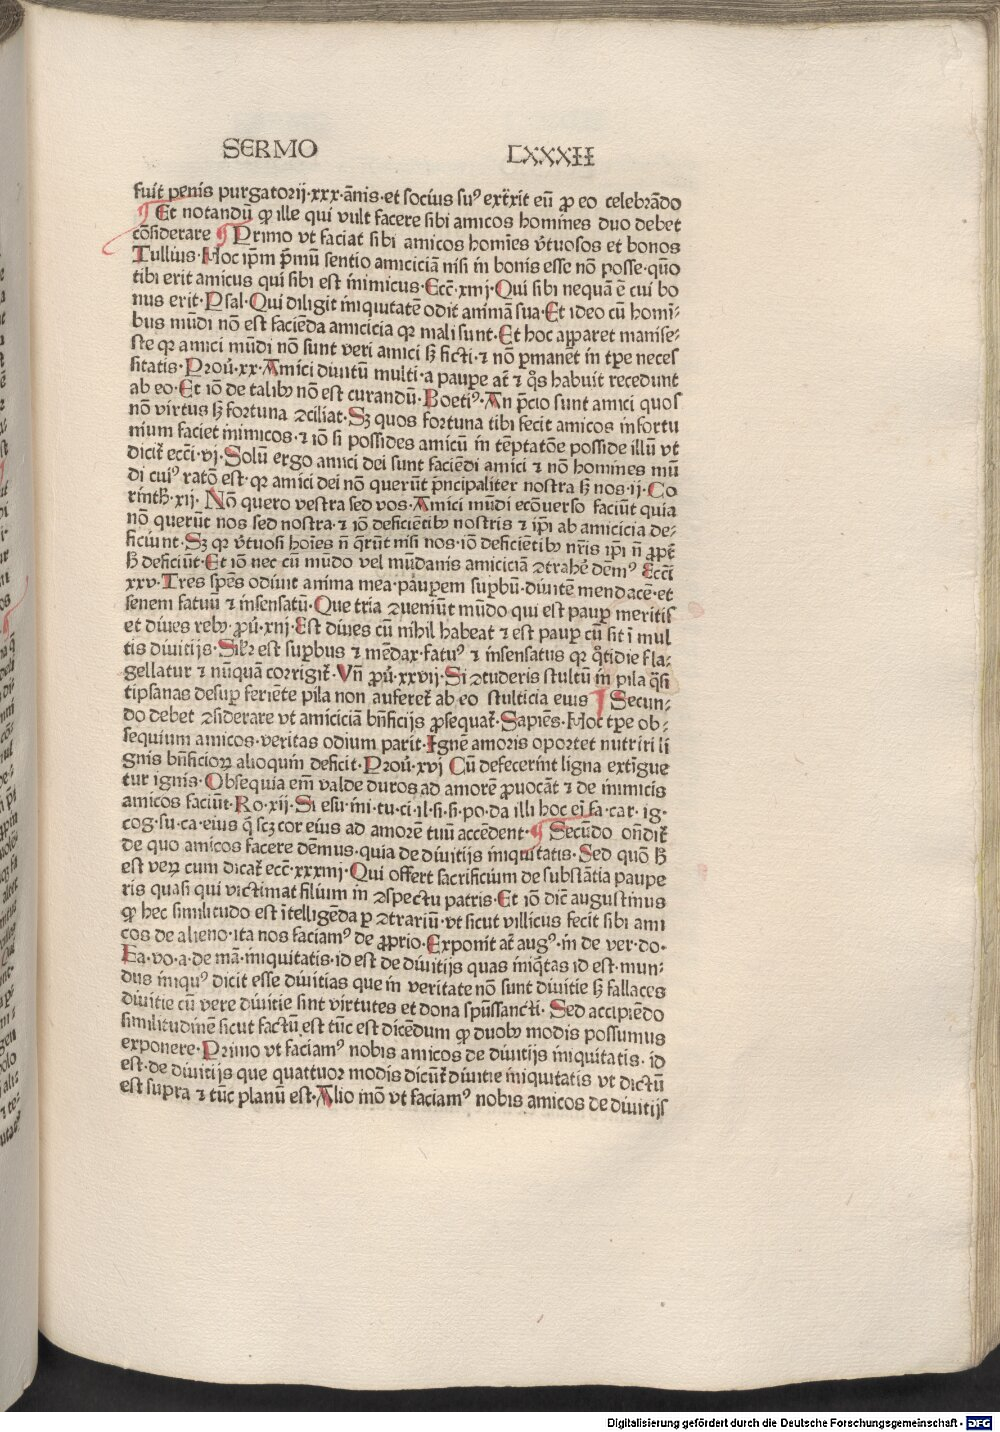 SERMO LXXXII
fuit penis purgatorij·xxx·ãnis·et socius suꝰ extˀxit eũ ꝓ eo celebrãdo
¶ Et notandũ ꝙ ille qui vult facere sibi amicos homines duo debet
cõsiderare ¶ Primo vt faciat sibi amicos homĩes v̾tuosos et bonos
Tullius·Hoc ip̃m p̃mũ sentio amiciciã nisi in bonis esse nõ posse·quõo
tibi erit amicus qui sibi est inimicus·Ecc̃·xiiij·Qui sibi nequã ẽ cui bo
nus erit·Psal·Qui diligit iniquitatẽ odit animã sua·Et ideo cũ homĩ⸗
bus mũdi nõ est faciẽda amicicia qꝛ mali sunt·Et hoc apparet manife⸗
ste qꝛ amici mũdi nõ sunt veri amici sꝫ ficti·⁊ nõ ꝑmanẽt in tꝑe neces
sitatis·Prou̾·xx·Amici diuitũ multi·a paupe at̃ ⁊ q̃s habuit recedunt
ab eo·Et iõ de talibꝫ nõ est curandũ·Boetiꝰ·An p̃cio sunt amici quos
nõ virtus sꝫ fortuna ꝯciliat·Sꝫ quos fortuna tibi fecit amicos infortu
nium faciet inimicos·⁊ iõ si possides amicũ in tẽptatõe posside illũ vt
dicit᷑ ecc̃i·vj·Solũ ergo amici dei sunt faciẽdi amici ⁊ nõ homines mũ
di cuiꝰ ratõ est·qꝛ amici dei nõ querũt p̃ncipaliter nostra sꝫ nos·ij·Co
rintħ·xij· Nõ quero vestra sed vos·Amici mũdi ecõuerso faciũt quia
nõ querũt nos sed nostra·⁊ iõ deficiẽtibꝫ nostris ⁊ ip̃i ab amicicia de⸗
ficiunt·Sꝫ qꝛ v̾tuosi hoĩes ñ q̃rũt nisi nos·iõ deficiẽtibꝫ nr̃is ip̃i ñ ꝓpt̾
ħ deficiũt·Et iõ nec cũ mũdo vel mũdanis amiciciã ꝯtrahe̾ dẽmꝰ Ecc̃i
xxv·Tres sp̃es odiuit anima mea·pauꝑem suꝑbũ·diuitẽ mendacẽ·et
senem fatuũ ⁊ insensatũ·Que tria ꝯueniũt mũdo qui est pauꝑ meritis
et diues rebꝫ·ꝓu̾·xiij·Est diues cũ nihil habeat ⁊ est pauꝑ cũ sit ĩ mul
tis diuitijs·Sil̾r est suꝑbus ⁊ mẽdax·fatuꝰ ⁊ insensatus qꝛ q̃tidie fla⸗
gellatur ⁊ nũquã corrigit᷑·Vñ ꝓu̾·xxvij·Si ꝯtuderis stultũ in pila q̃si
tipsanas desuꝑ feriẽte pila non auferet᷑ ab eo stulticia eius ¶ Secun⸗
do debet ꝯsiderare vt amiciciã bñficijs ꝓsequat᷑·Sapiẽs·Hoc tꝑe ob⸗
sequium amicos·veritas odium parit·Ignẽ amoris oportet nutriri li
gnis bñficioꝝ alioquin deficit·Prou̾·xvj Cũ defecerint ligna extĩgue
tur ignis·Obsequia em̃ valde duros ad amorẽ ꝓuocãt ⁊ de inimicis
amicos faciũt·Ro·xij·Si esu·ini·tu·ci·il·si·si·po·da illi hoc eĩ fa·car·ig·
cog·su·ca·eius q̃ scꝫ cor eius ad amorẽ tuũ accẽdent·¶ Secũdo oñdit᷑
de quo amicos facere dẽmus·quia de diuitijs iniquitatis·Sed quõ ħ
est veꝝ cum dicat᷑ ecc̃·xxxiiij·Qui offert sacrificium de substãtia paupe
ris quasi qui victimat filium in ꝯspectu patris·Et iõ dic̃ augustinus
ꝙ hec similitudo est ĩtelligẽda ꝑ ꝯtrariũ·vt sicut villicus fecit sibi ami
cos de alieno·ita nos faciamꝰ de ꝓprio·Exponit at̃ augꝰ·in de ver·do·
Fa·vo·a·de mã·iniquitatis·id est de diuitijs quas iniq̃tas id est·mun⸗
dus iniquꝰ dicit esse diuitias que in veritate nõ sunt diuitie sꝫ fallaces
diuitie cũ vere diuitie sint virtutes et dona sp̃ussancti·Sed accipiẽdo
similitudinẽ sicut factũ est tũc est dicẽdum ꝙ duobꝫ modis possumus
exponere·Primo vt faciamꝰ nobis amicos de diuitijs iniquitatis·id
est·de diuitijs que quattuor modis dicũt᷑ diuitie iniquitatis vt dictũ
est supra ⁊ tũc planũ est·Alio mõ vt faciamꝰ nobis amicos de diuitijs
Digitalisierung gefördert durch die Deutsche Forschungsgemeinschaft - DFG